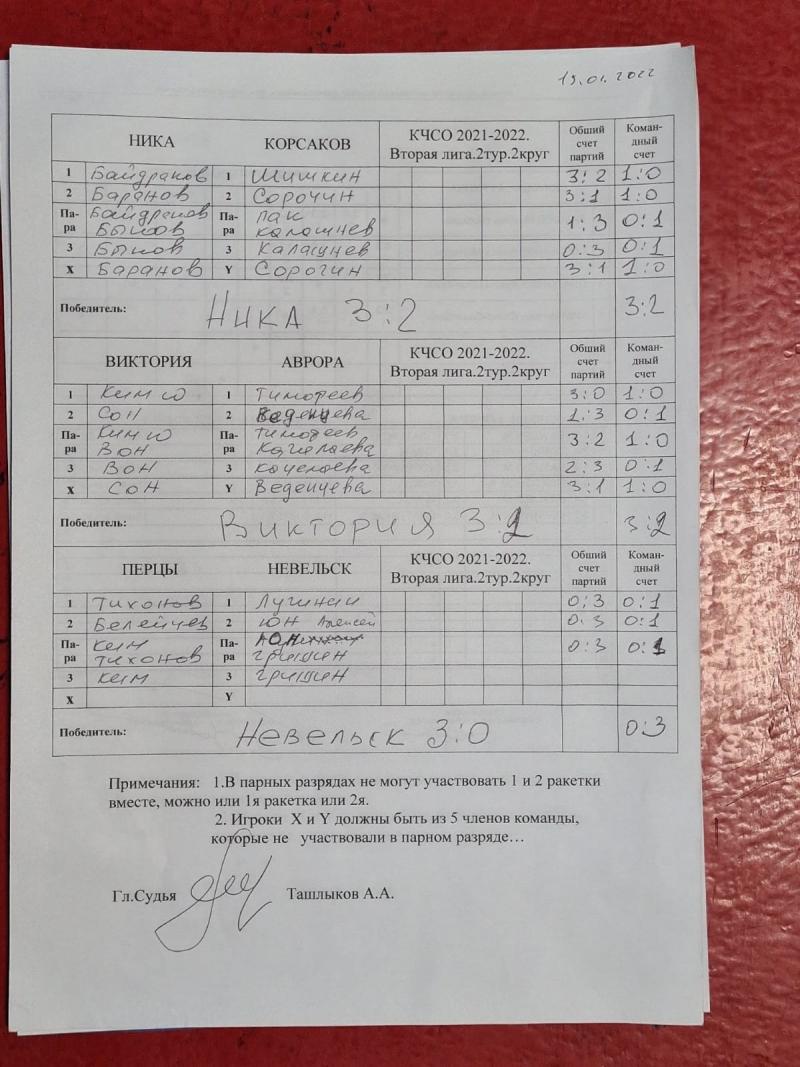 19.01.2022
НИКА КОРСАКОВ КЧСО 2021-2022. Вторая лига.2тур.2круг Общий счет партий Коман-дный счет
1 Байдраков 1 Шишкин 3:2 1:0
2 Баранов 2 Сорочин 3:1 1:0
Па-ра Байдраков Быков Па-ра Пак Калашнев 1:3 0:1
3 Быков 3 Калашнев 0:3 0:1
X Баранов Y Сорочин 3:1 1:0
Победитель: НИКА 3:2 3:2
ВИКТОРИЯ АВРОРА КЧСО 2021-2022. Вторая лига.2тур.2круг Общий счет партий Коман-дный счет
1 Ким Ю 1 Тимофеев 3:0 1:0
2 Сон 2 Веденцева 1:3 0:1
Па-ра Ким Ю Вон Па-ра Тимофеев 3:2 1:0
3 Вон 3 2:3 0:1
X Сон Y Веденцева 3:1 1:0
Победитель: Виктория 3:2 3:2
ПЕРЦЫ НЕВЕЛЬСК КЧСО 2021-2022. Вторая лига.2тур.2круг Общий счет партий Коман-дный счет
1 Тихонов 1 0:3 0:1
2 Белейчев 2 Юн Алексей 0:3 0:1
Па-ра Ким Тихонов Па-ра Гришин 0:3 0:1
3 Ким 3 Гришин
X Y
Победитель: Невельск 3:0 0:3
Примечания: 1.В парных разрядах не могут участвовать 1 и 2 ракетки
вместе, можно или 1я ракетка или 2я.
2. Игроки X и Y должны быть из 5 членов команды,
которые не участвовали в парном разряде…
Гл.Судья Ташлыков А.А.